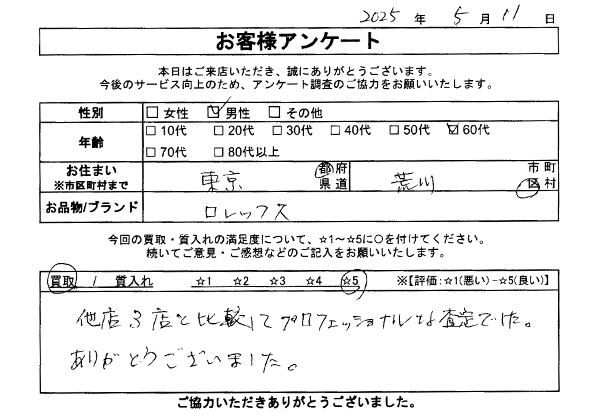 2025 年 5 月 11 日
お客様アンケート
本日はご来店いただき、誠にありがとうございます。
今後のサービス向上のため、アンケート調査のご協力をお願いいたします。
性別 □ 女性 ☑ 男性 □ その他
年齢 □ 10代 □ 20代 □ 30代 □ 40代 □ 50代 ☑ 60代
□ 70代 □ 80代以上
お住まい ※市区町村まで 東京 都府県道 荒川 市町区村
お品物/ブランド ロレックス
今回の買取・質入れの満足度について、☆1～☆5に○を付けてください。
続いてご意見・ご感想などのご記入をお願いいたします。
買取 / 質入れ ☆1 ☆2 ☆3 ☆4 ☆5 ※【評価:☆1(悪い)-☆5(良い)】
他店3店と比較してプロフェッショナルな査定でした。
ありがとうございました。
ご協力いただきありがとうございました。